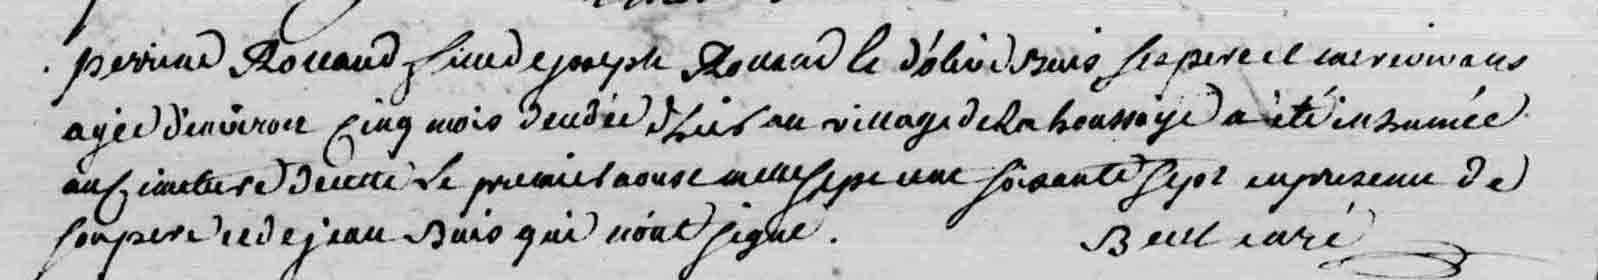 perrine Rouaud fille de joseph Rouaud & d'olive Buis ses pere et mere vivans
agée d'environ cinq mois decedée d'hier au village de la houssaye a été inhumée
au cimetiere de cette le premier aoust mille sept cent soixante sept en presence de
son pere et de jean Buis qui n'ont signé.
curé